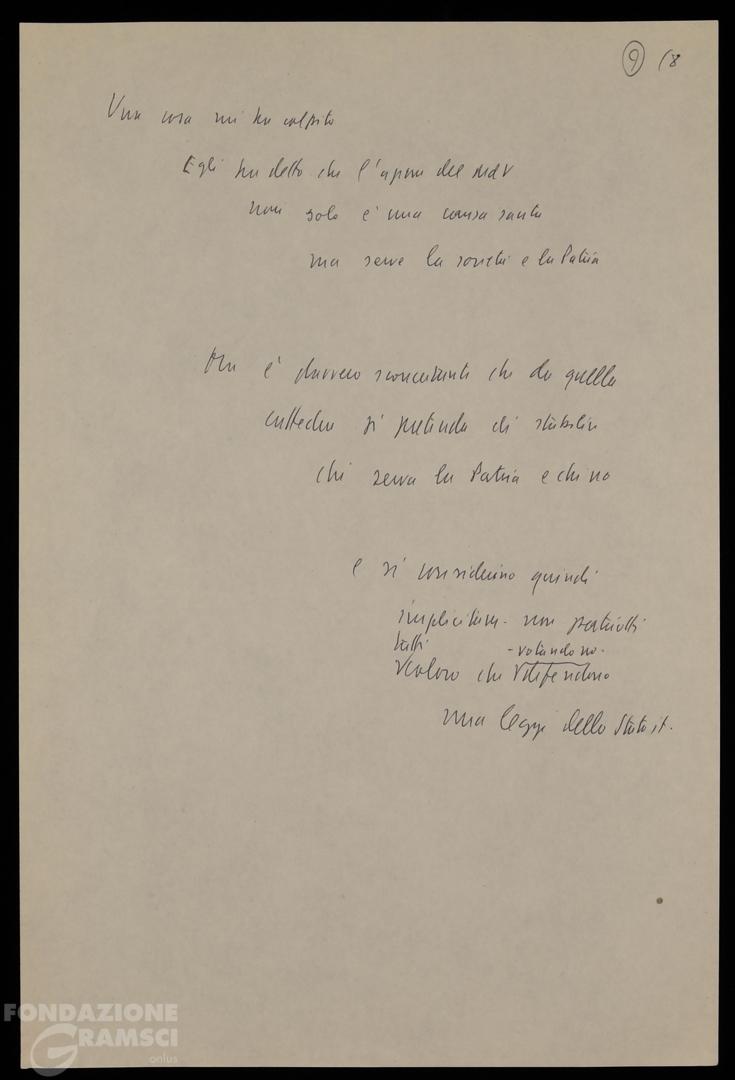 9 /8
Una cosa mi ha colpito
Egli ha detto che l'azione del MdV
non solo è una causa santa
ma serve la società e la Patria
Ma è davvero sconcertante che da quella
cattedra si pretenda di stabilire
chi serva la Patria e chi no
e si considerino quindi
implicitam. non patriotti
tutti - votando no -
coloro che difendono
una legge dello Stato it.
FONDAZIONE
GRAMSCI
onlus